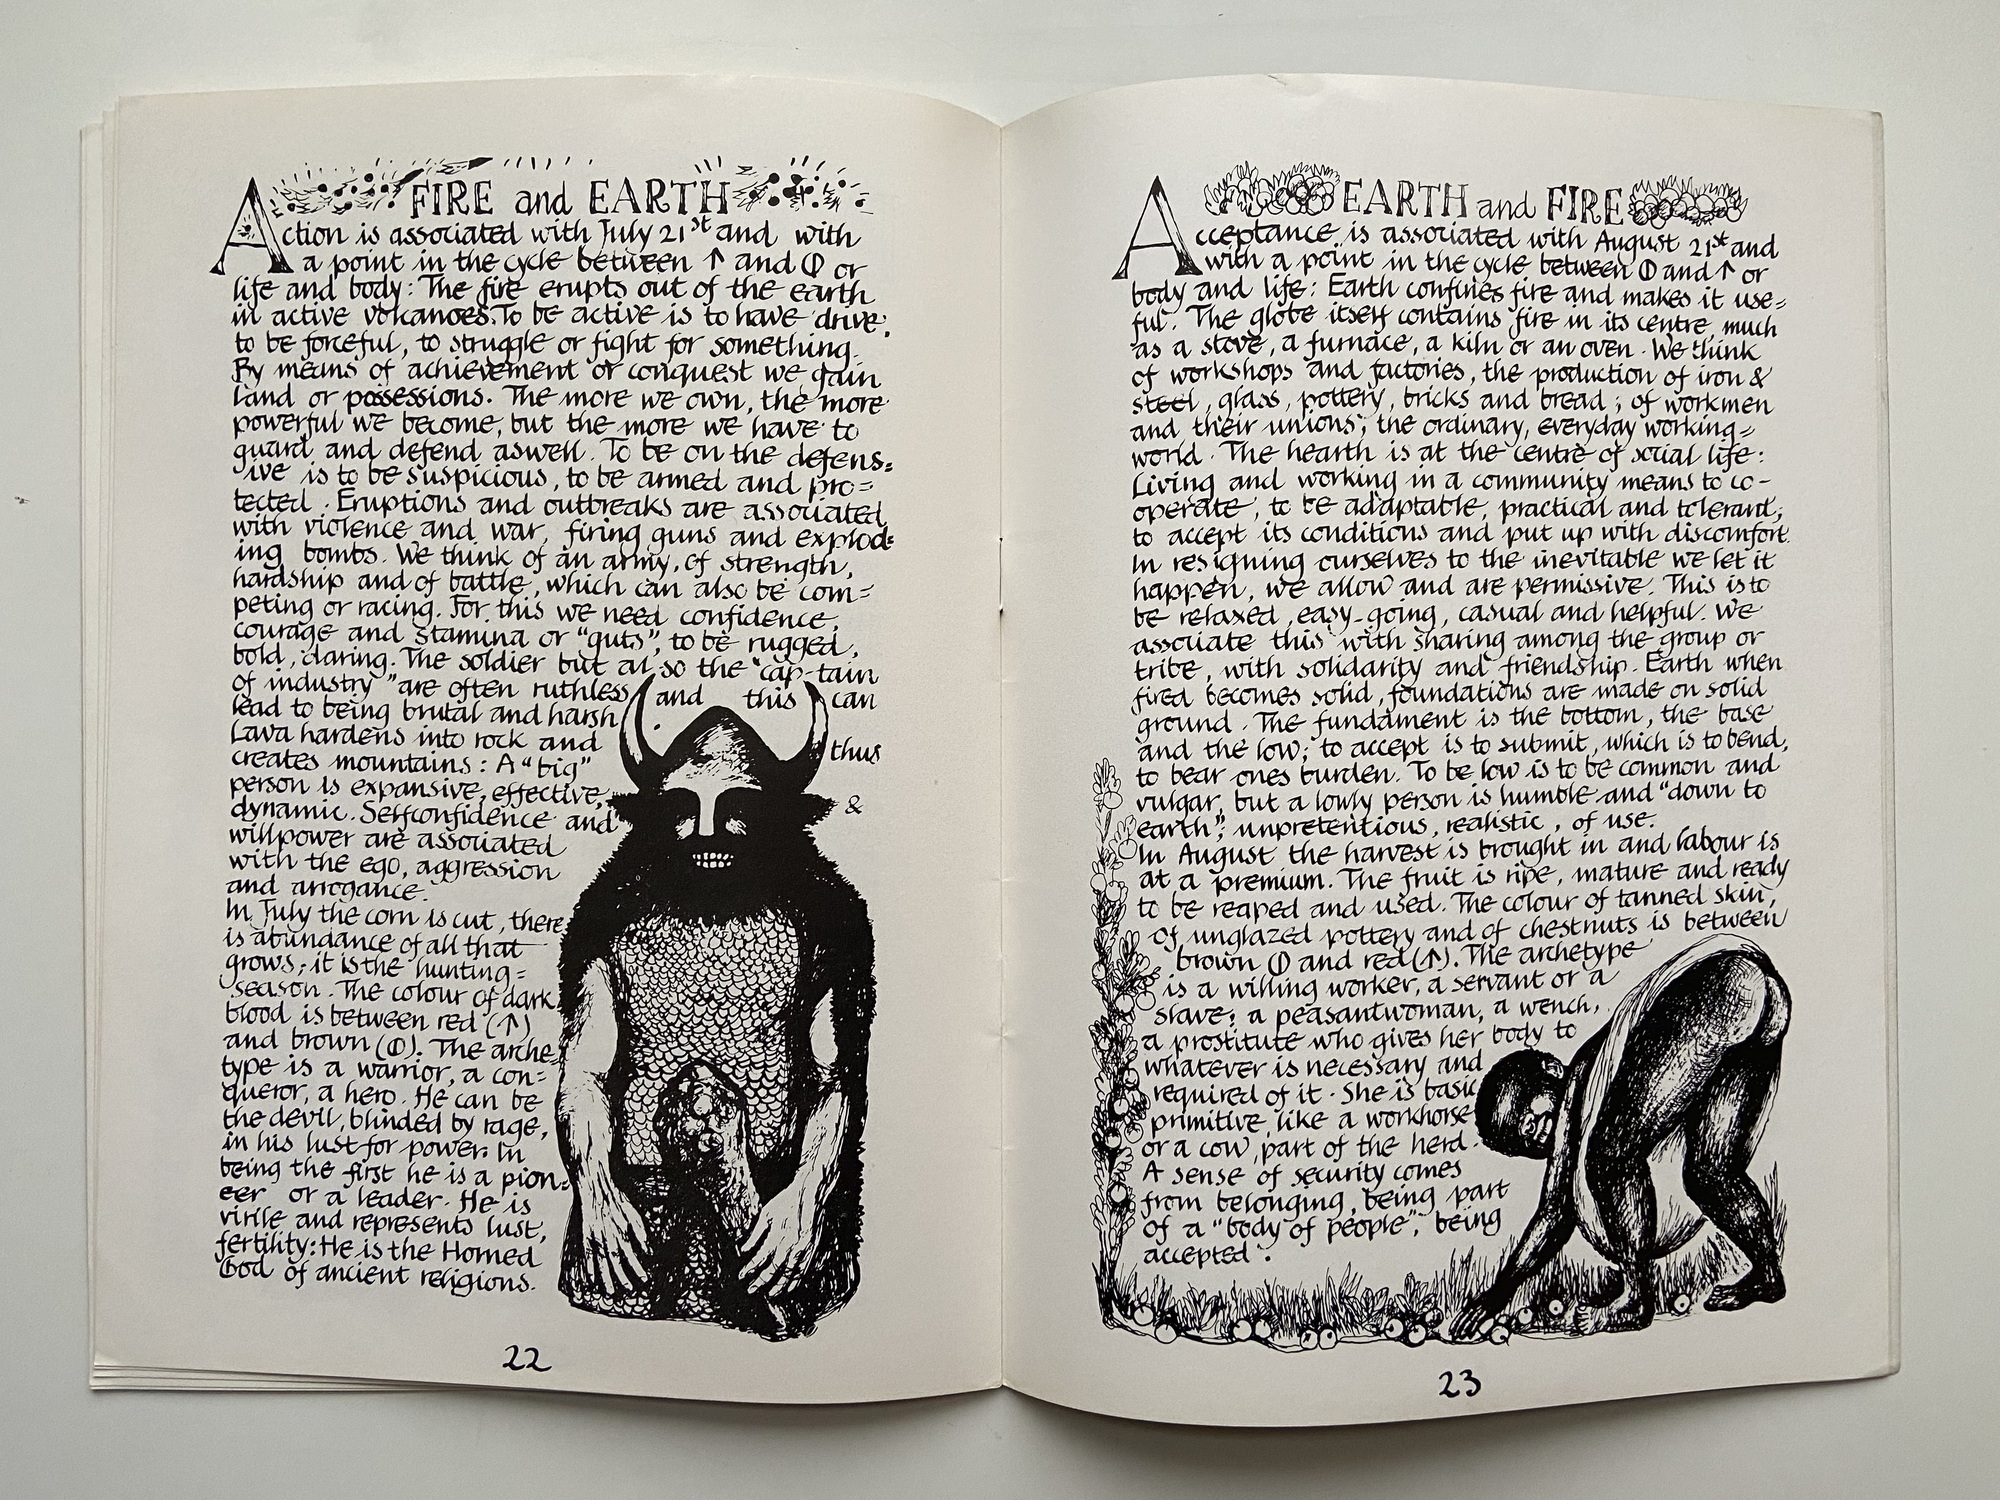 FIRE and EARTH
Action is associated with July 21st and with
a point in the cycle between ↑ and ⏀ or
life and body: The fire erupts out of the earth
in active volcanoes. To be active is to have drive,
to be forceful, to struggle or fight for something.
By means of achievement or conquest we gain
land or possessions. The more we own, the more
powerful we become, but the more we have to
guard and defend aswell. To be on the defens=
ive is to be suspicious, to be armed and pro=
tected. Eruptions and outbreaks are associated
with violence and war, firing guns and explod=
ing bombs. We think of an army, of strength,
hardship and of battle, which can also be com=
peting or racing. For this we need confidence,
courage and stamina or "guts", to be rugged,
bold, daring. The soldier but al-so the "cap-tain
of industry" are often ruthless and this can
lead to being brutal and harsh
Lava hardens into rock and thus
creates mountains: A "big"
person is expansive, effective, &
dynamic. Selfconfidence and
willpower are associated
with the ego, aggression
and arrogance.
In July the corn is cut, there
is abundance of all that
grows; it is the hunting=
season. The colour of dark
blood is between red (↑)
and brown (⏀). The arche=
type is a warrior, a con=
queror, a hero. He can be
the devil, blinded by rage,
in his lust for power. In
being the first he is a pion=
eer or a leader. He is
virile and represents lust,
fertility: He is the Horned
God of ancient religions.
22
EARTH and FIRE
Acceptance is associated with August 21st and
with a point in the cycle between ⏀ and ↑ or
body and life: Earth confines fire and makes it use=
ful. The globe itself contains fire in its centre, much
as a stove, a furnace, a kiln or an oven. We think
of workshops and factories, the production of iron &
steel, glass, pottery, bricks and bread; of workmen
and their unions, the ordinary, everyday working=
world. The hearth is at the centre of social life:
Living and working in a community means to co-
operate, to be adaptable, practical and tolerant,
to accept its conditions and put up with discomfort.
In resigning ourselves to the inevitable we let it
happen, we allow and are permissive. This is to
be relaxed, easy-going, casual and helpful. We
associate this with sharing among the group or
tribe, with solidarity and friendship. Earth when
fired becomes solid, foundations are made on solid
ground. The fundament is the bottom, the base
and the low; to accept is to submit, which is to bend,
to bear ones burden. To be low is to be common and
vulgar, but a lowly person is humble and "down to
earth", unpretentious, realistic, of use.
In August the harvest is brought in and labour is
at a premium. The fruit is ripe, mature and ready
to be reaped and used. The colour of tanned skin,
of unglazed pottery and of chestnuts is between
brown ⏀ and red (↑). The archetype
is a willing worker, a servant or a
slave; a peasantwoman, a wench,
a prostitute who gives her body to
whatever is necessary and
required of it. She is basic
primitive, like a workhorse
or a cow, part of the herd.
A sense of security comes
from belonging, being part
of a "body of people", being
accepted.
23